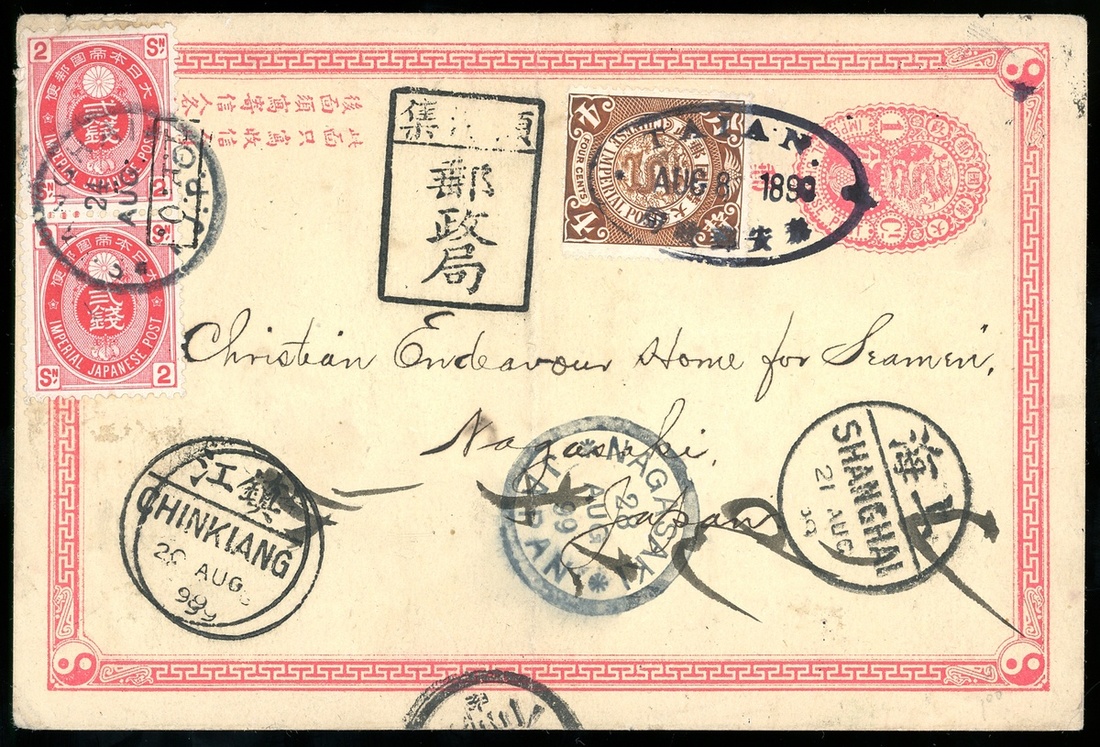 2 SN
大日本帝國郵便
貳錢
IMPERIAL JAPANESE POST
SN 2
大日本帝國郵便
貳錢
IMPERIAL JAPANESE POST
SN 2
AUG.
I.J.P.O.
後面須寫寄信人名
此面只寫收信
郵政局
4 4
CHINESE IMPERIAL POST
FOUR CENTS
4
TAIAN.
AUG 8 1899
泰安
1
Christian Endeavour Home for Seamen,
Nagasaki,
Japan
鎮江
CHINKIANG
20 AUG
99
NAGASAKI
28
AUG
99
JAPAN
上海
SHANGHAI
21 AUG
99